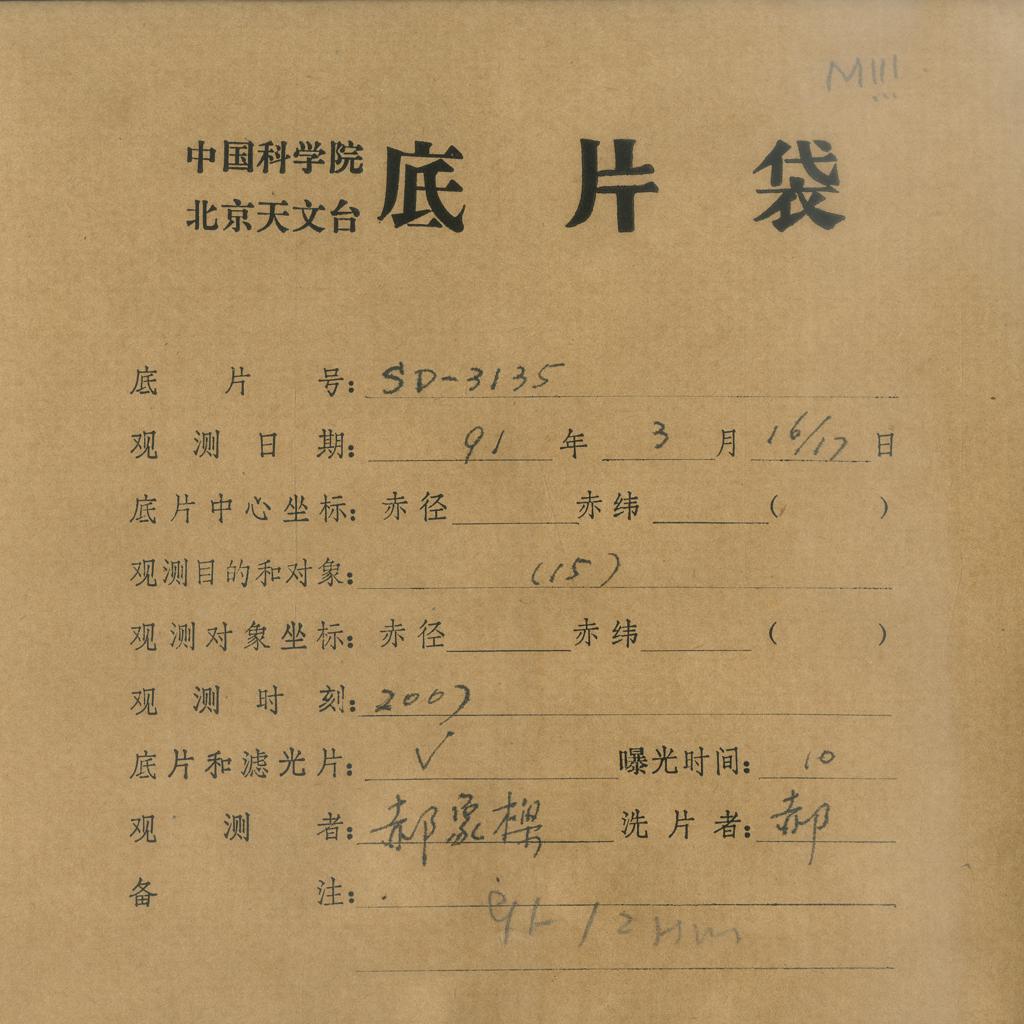 中国科学院
北京天文台
底片袋
底片号：SD-3135
观测日期：91年3月16/17日
底片中心坐标：赤径 赤纬 （ ）
观测目的和对象：(15)
观测对象坐标：赤径 赤纬 （ ）
观测时刻：2007
底片和滤光片：V 曝光时间：10
观测者：郝象樑 洗片者：郝
备注：